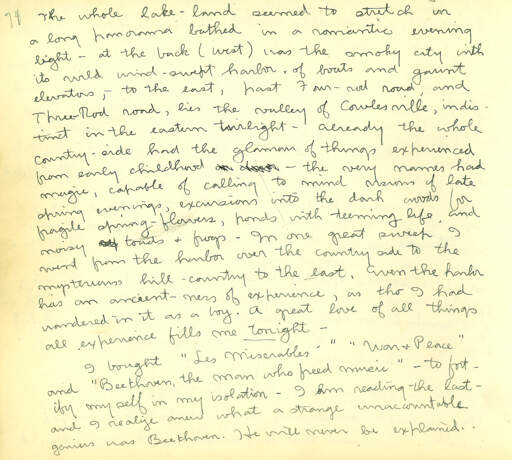 74
The whole lake-land seemed to stretch in
a long panorama bathed in a romantic evening
light - at the back (west) was the smoky city with
its wild wind-swept harbor, of boats and gaunt
elevators, - to the east, past Four-rod road, and
Three Rod road, lies the valley of Cowlesville, indis-
tinct in the eastern twilight - already the whole
country-side had the glamour of things experienced
from early childhood - the very names had
magic, capable of calling to mind visions of late
spring evenings, excursions into the dark woods for
fragile spring-flowers, ponds with teeming life, and
noisy toads & frogs - In one great sweep I
went from the harbor over the country side to the
mysterious hill-country to the east. Even the harbor
has an ancient-ness of experience, as tho I had
wandered in it as a boy. A great love of all things
all experience fills me tonight -
I bought "Les Miserables" "War & Peace"
and "Beethoven, the man who freed music" - to fort-
ify myself in my isolation - I am reading the last -
and I realize anew what a strange unaccountable
genius was Beethoven. He will never be explained. .